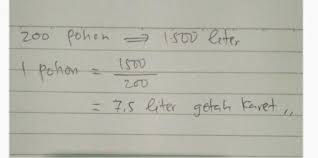 200 pohon ⇒ 1500 liter
1 pohon = 1500
200
= 7,5 liter getah karet,,